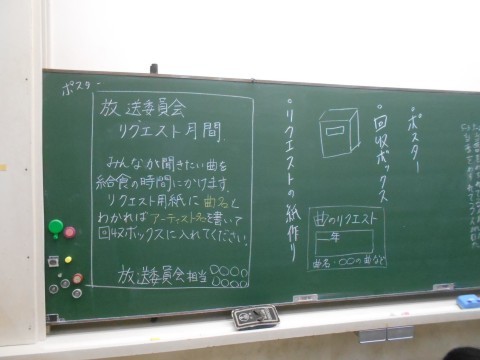 ポスター
放送委員会
リクエスト月間
みんなが聞きたい曲を
給食の時間にかけます。
リクエスト用紙に曲名と
わかればアーティスト名を書いて
回収ボックスに入れてください。
放送委員会担当 〇〇〇〇
〇〇〇〇
・ポスター
・回収ボックス
・リクエストの紙作り
曲のリクエスト
年
曲名・〇〇の曲など